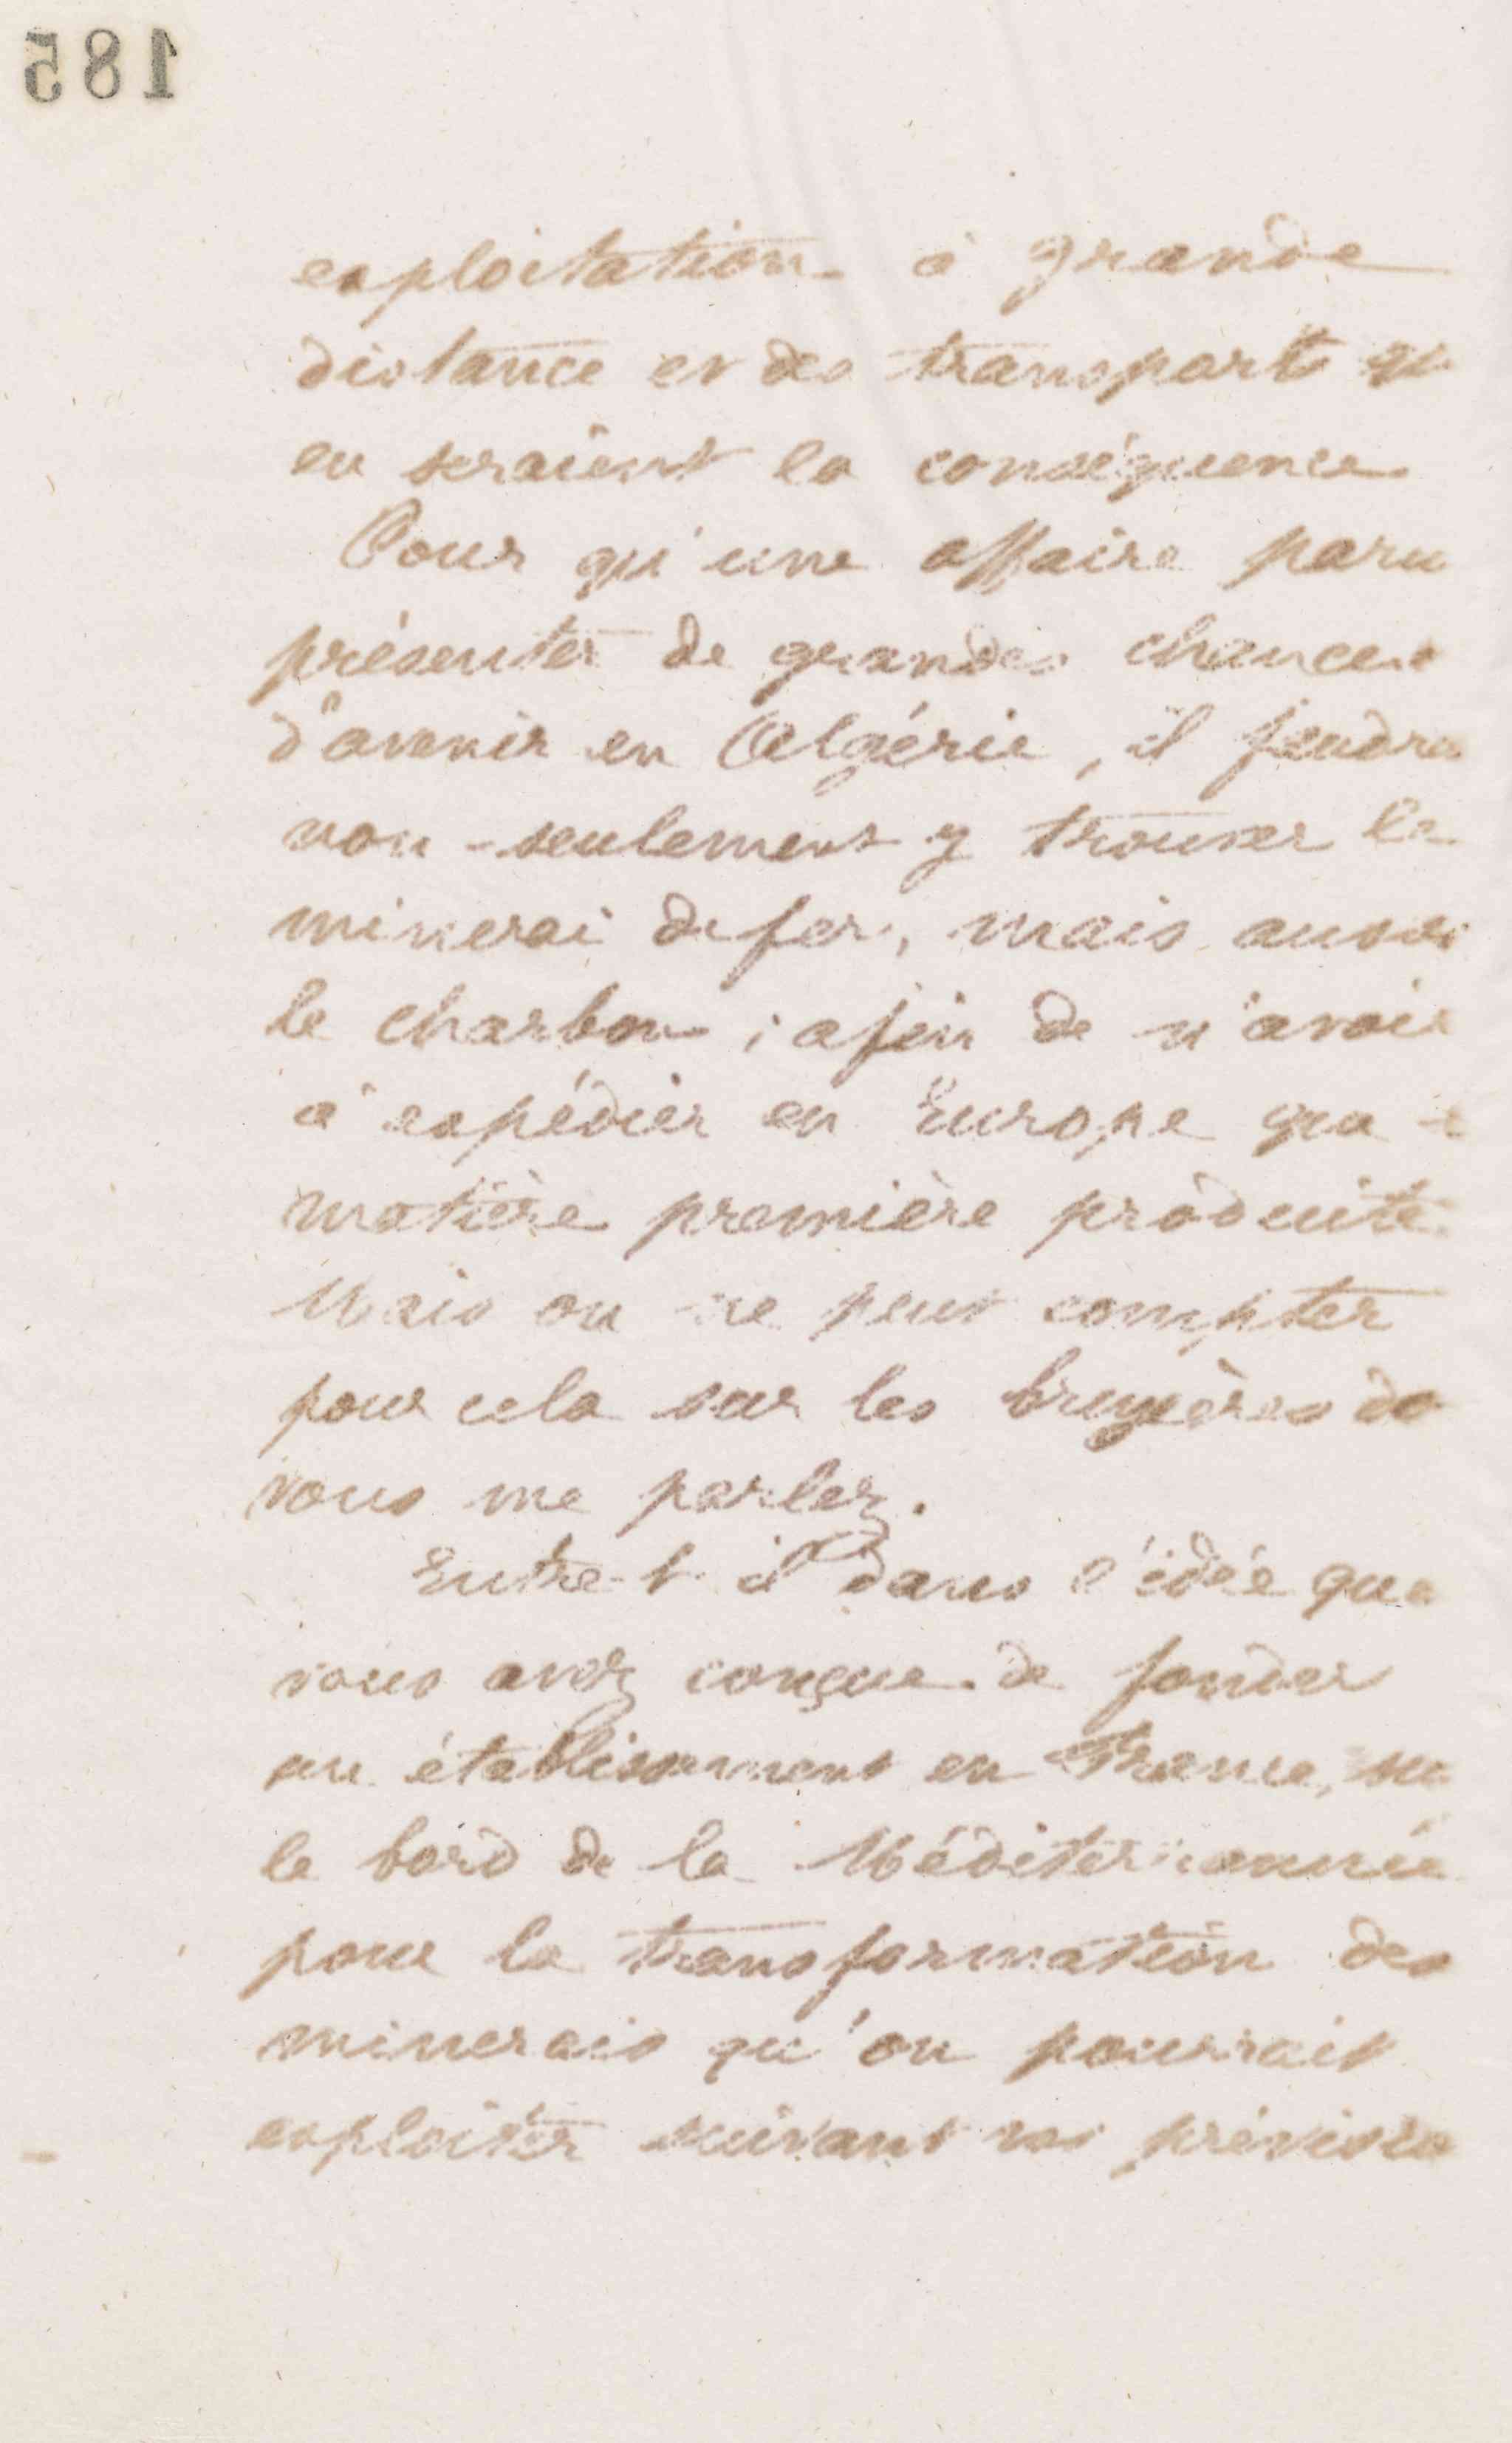 185
exploitation à grande
distance et des transports qu
en seraient la conséquence
Pour qu'une affaire paru
présenter de grandes chances
d'avenir en Algérie, il faudra
non-seulement y trouver le
minerai de fer, mais aussi
le charbon ; afin de n'avoir
à expédier en Europe que
matière première produite
Mais on ne peut compter
pour cela sur les bruyères do
vous me parlez.
Entre-t-il dans l'idée que
vous avez conçue de fonder
un établissement en France, su
le bord de la Méditerranée
pour la transformation des
minerais qu'on pourrait
exploiter suivant vos prévisio